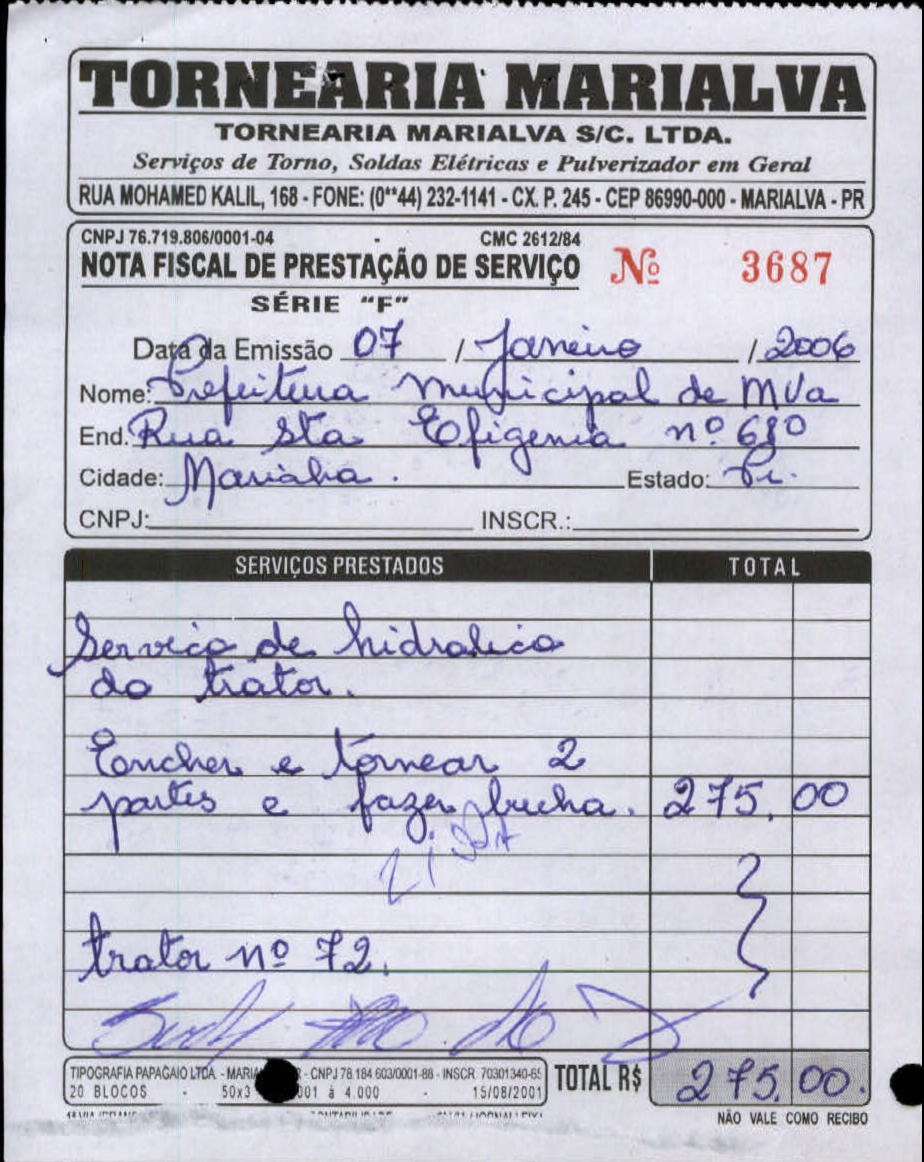 TORNEARIA MARIALVA
TORNEARIA MARIALVA S/C. LTDA.
Serviços de Torno, Soldas Elétricas e Pulverizador em Geral
RUA MOHAMED KALIL, 168 - FONE: (0**44) 232-1141 - CX. P. 245 - CEP 86990-000 - MARIALVA - PR
CNPJ 76.719.806/0001-04 CMC 2612/84
NOTA FISCAL DE PRESTAÇÃO DE SERVIÇO Nº 3687
SÉRIE "F"
Data da Emissão 07 / Janeiro / 2006
Nome: Prefeitura Municipal de Mva
End. Rua Sta Efigenia nº 680
Cidade: Marialva. Estado: Pr.
CNPJ: INSCR.:
SERVIÇOS PRESTADOS TOTAL
Serviço de hidraulico
do trator.
Encher e tornear 2
partes e fazer bucha. 275,00
trator nº 72.
TIPOGRAFIA PAPAGAIO LTDA - CNPJ 78.184.603/0001-86 - INSCR 70301340-65
20 BLOCOS - 50x3 001 à 4.000 - 15/08/2001
TOTAL R$ 275,00.
NÃO VALE COMO RECIBO